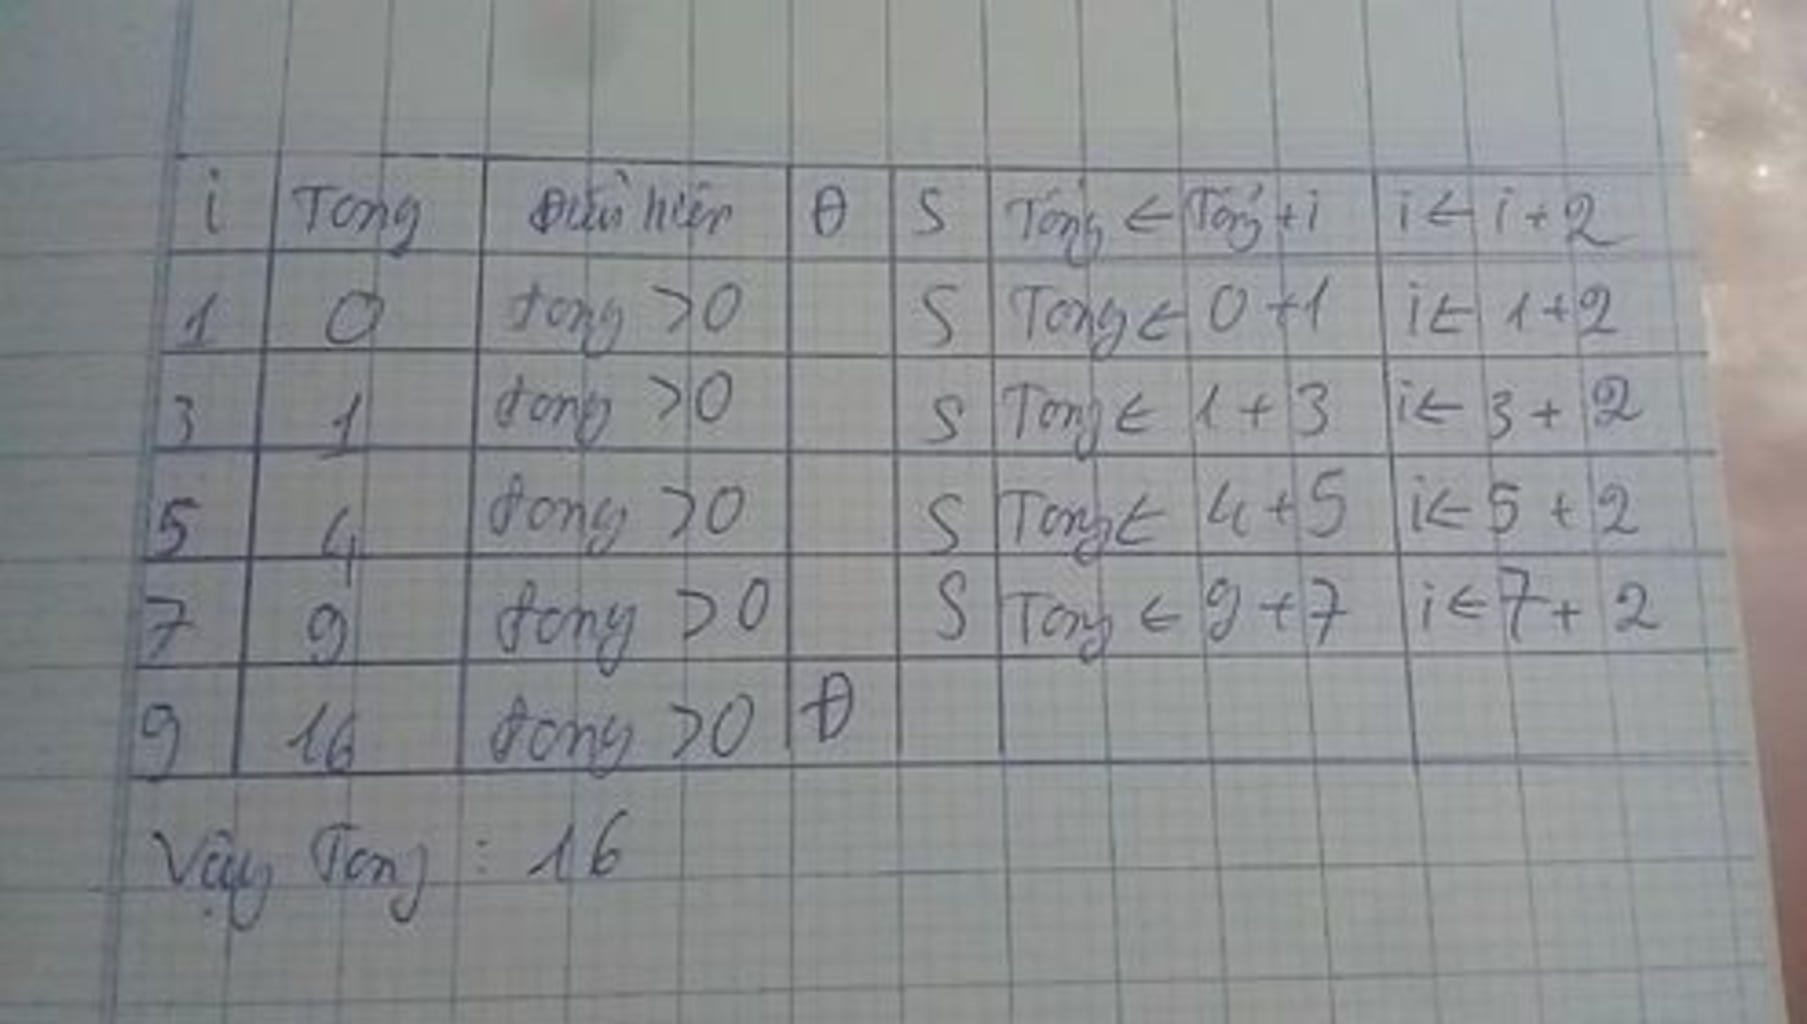 i Tong Điều kiện Đ S Tổng ← Tổng + i i ← i + 2
1 0 tong > 0 S Tong ← 0 + 1 i ← 1 + 2
3 1 tong > 0 S Tong ← 1 + 3 i ← 3 + 2
5 4 tong > 0 S Tong ← 4 + 5 i ← 5 + 2
7 9 tong > 0 S Tong ← 9 + 7 i ← 7 + 2
9 16 tong > 0 Đ
Vậy Tong : 16